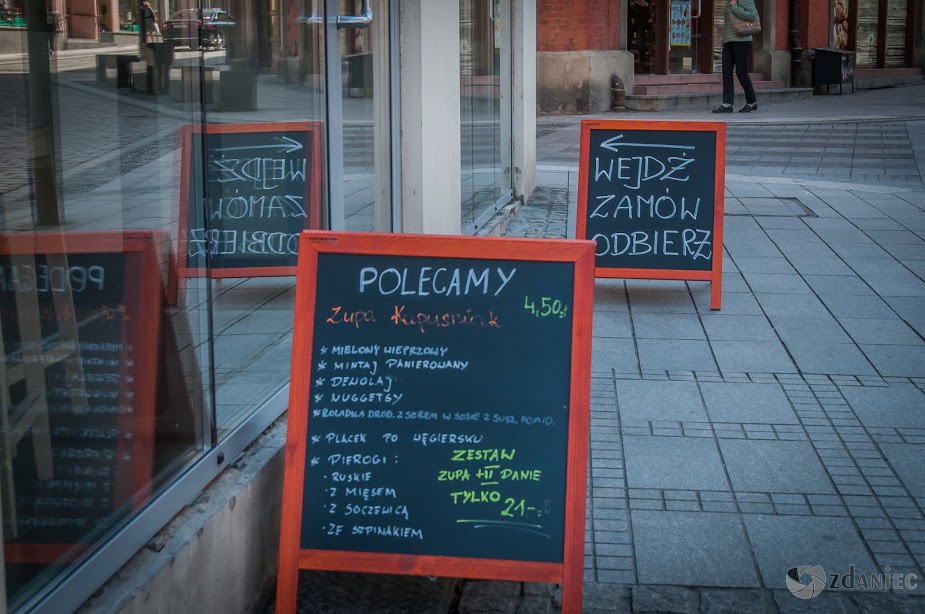 WEJDŹ
ZAMÓW
ODBIERZ
POLECAMY
Zupa Kapuśniak 4,50zł
* MIELONY WIEPRZOWY
* MINTAJ PANIEROWANY
* DEWOLAJ
* NUGGETSY
* ROLADKA DROB. Z SEREM W SOSIE Z SUSZ. POMID.
* PLACEK PO WĘGIERSKU
* PIEROGI:
· RUSKIE
· Z MIĘSEM
· Z SOCZEWICĄ
· ZE SZPINAKIEM
ZESTAW
ZUPA + II DANIE
TYLKO
21-zł
ZDANIEC